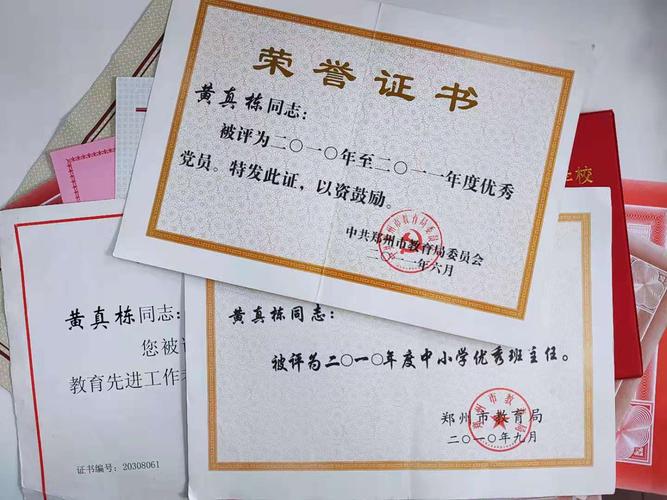 荣誉证书
黄真栋同志：
被评为二〇一〇年至二〇一一年度优秀
党员。特发此证，以资鼓励。
中共郑州市教育局委员会
二〇一一年六月
黄真栋同志：
您被
教育先进工作
证书编号：20308061
黄真栋同志：
被评为二〇一〇年度中小学优秀班主任。
郑州市教育局
二〇一〇年九月
校